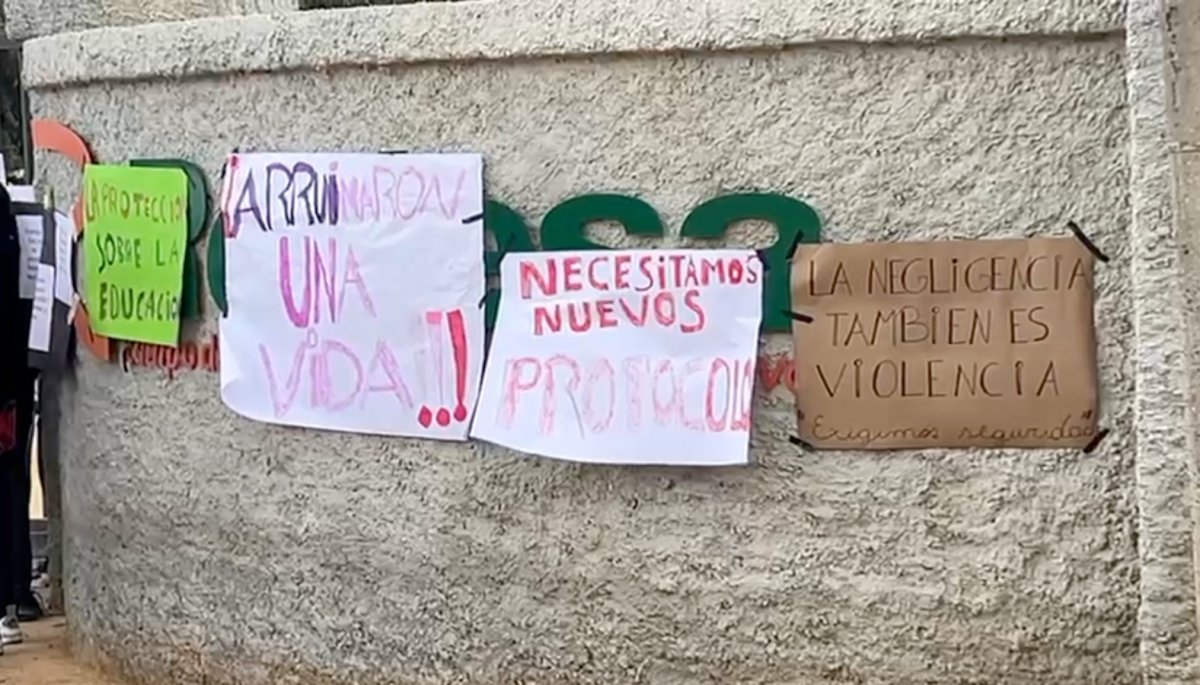 LA PROTECCIO
SOBRE LA
EDUCACIO
¡ARRUINARON
UNA
VIDA!!!
NECESITAMOS
NUEVOS
PROTOCOLO
LA NEGLIGENCIA
TAMBIEN ES
VIOLENCIA
"Exigimos seguridad"